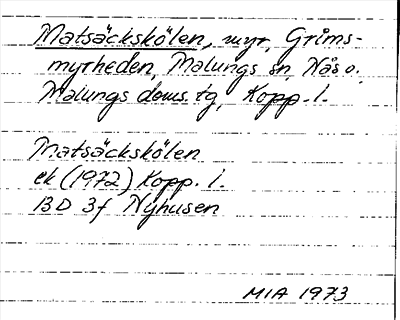 Matsäckskölen, myr, Gråms-
myrheden, Malungs sn, Nås o.
Malungs doms. tg, Kopp. l.
Matsäckskölen
ek (1972) Kopp. l.
13D 3f Nyhusen
MIA 1973